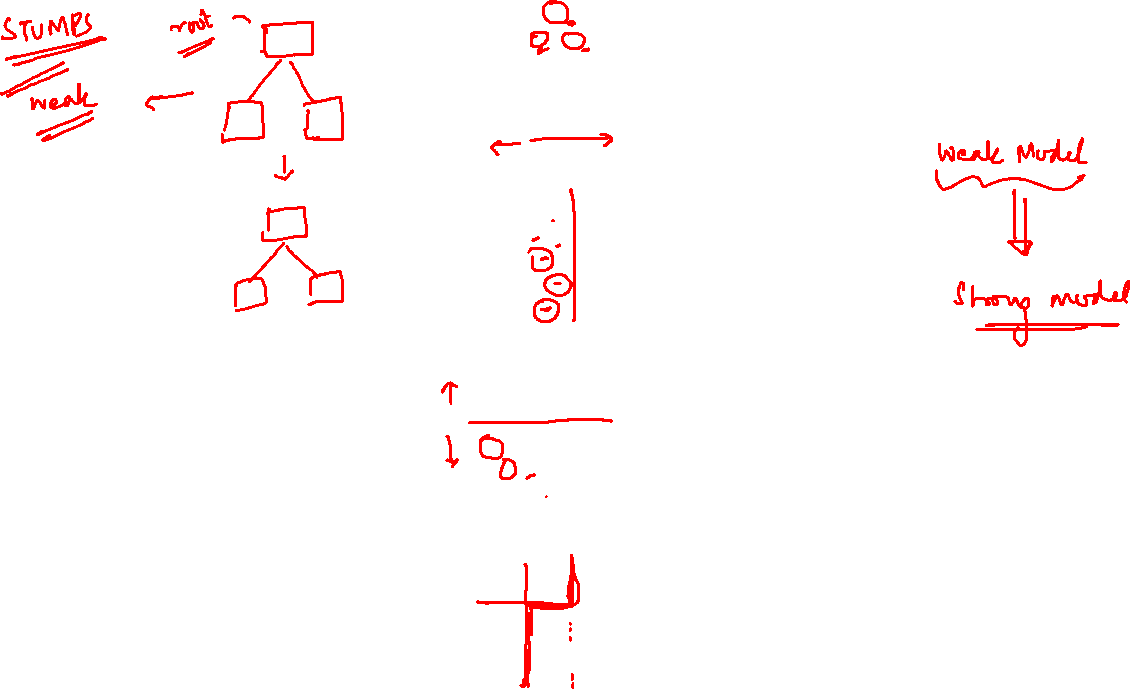 STUMPS
root
weak
Weak Model
Strong model